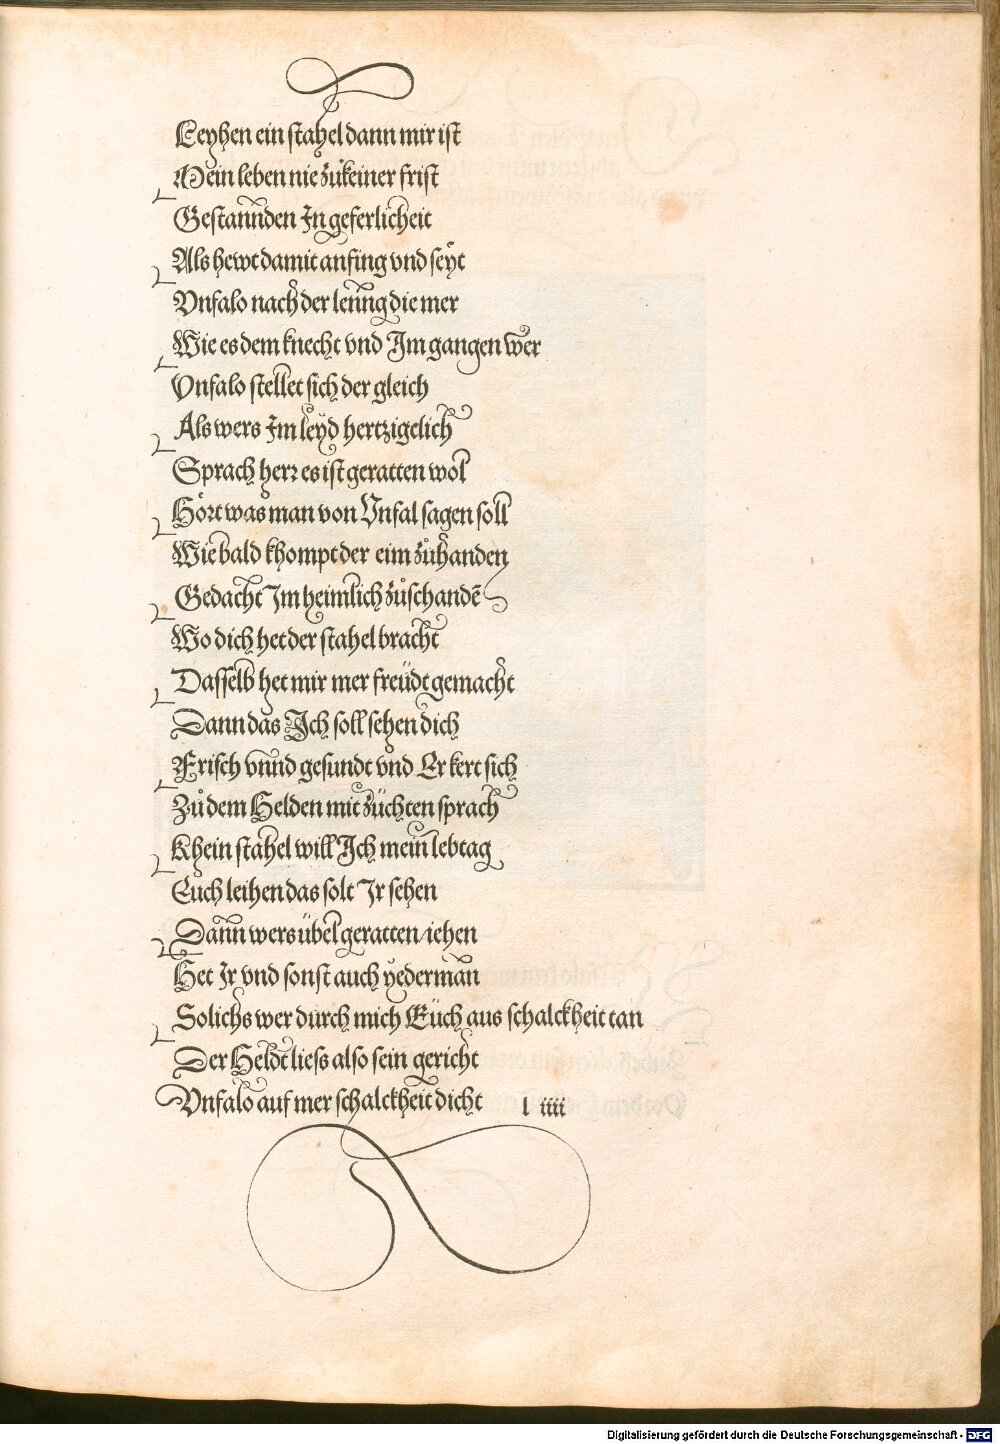 Leyhen ein stahel dann mir ist
Mein leben nie zůkeiner frist
Gestannden In geferlicheit
Als hewt damit anfing vnd seyt
Vnfalo nach der lenng die mer
Wie es dem knecht vnd Im gangen wer
Vnfalo stellet sich der gleich
Als wers Im leyd hertzigclich
Sprach herr es ist geratten wol
Hört was man von Vnfal sagen soll
Wie bald khompt der eim zůhanden
Gedacht Im heimlich zůschandē
Wo dich het der stahel bracht
Dasselb het mir mer freüdt gemacht
Dann das Ich soll sehen dich
Frisch vnnd gesundt vnd Er kert sich
Zů dem Helden mit züchten sprach
Khein stahel will Ich mein lebtag
Euch leihen das solt Ir sehen
Dann wers übel geratten/iehen
Het Ir vnd sonst auch yederman
Solichs wer durch mich Eüch aus schalckheit tan
Der Heldt liess also sein gericht
Vnfalo auf mer schalckheit dicht l iiii
Digitalisierung gefördert durch die Deutsche Forschungsgemeinschaft - DFG